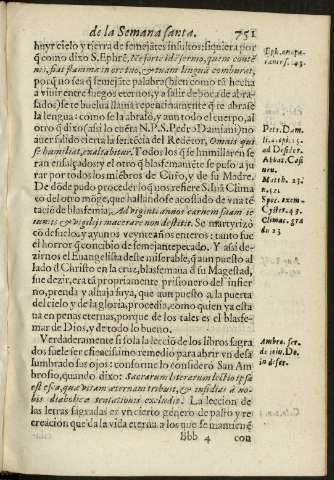 de la Semana santa. 751
huyr cielo y tierra de semejãtes insultos: siquiera por
q̃ como dixo S. Ephrẽ, Ne forte ide sermo, quem contẽ
nis, fiat flamma in ore tuo, & tuam linguã comburat,
porq̃ no sea q̃ semejãte palabra (si bien como tã hecha
a viuir entre fuegos eternos, y a salir de boca de abra-
sados) se te buelua llama repentinamente q̃ te abrase
la lengua: como se la abrasó, y aun todo el cuerpo, al
otro q̃ dixo (asi lo cuẽta N. P. S. Pedro Damiani) no
auer salido cierta la sẽtẽcia del Redẽtor, Omnis qui
se humiliat, exaltabitur, Todo los q̃ se humillaren se
ran ensalçados y el otro q̃ blasfemãdo se puso a ju
rar por todos los miẽbros de Christo, y de su Madre.
De dõde pudo proceder lo q̃ nos refiere S. Iuã Clima
co del otro mõge, que hallãdose acosado de vna tẽ
tació de blasfemia, Ad viginti annos carnem suam ie
iunijs & vigilijs macerare non destitit. Se martyrizó
cõ desuelos, y ayunos veynte años enteros: tanto fue
el horror q̃ concibio de semejante pecado. Y asi de-
zirnos el Euangelista deste miserable, q̃ aun puesto al
lado d̃ Christo en la cruz, blasfemaua d̃ su Magestad,
fue dezir, era tã propriamente prisionero del infier
no, prenda y alhaja suya, que aun puesto a la puerta
del cielo y de la gloria, procedia, como quien ya esta
ua en penas eternas, porque de los tales es el blasfe-
mar de Dios, y de todo lo bueno.
Verdaderamente si sola la lecció de los libros sagra
dos suele ser eficacissimo remedio para abrir vn desa
lumbrado sus ojos: conforme lo consideró San Am
brosio, quando dixo: Sacrarum literarum lectio ipsa
est esca, quæ vitam æternam tribuit, & insidias à no-
bis diabolicæ tentationis excludit. La leccion de
las letras sagradas es vn cierto género de pasto y re
creacion que da la vida eterna a los que se mantienẽ
Bbb 4 con
Petr. Dam-
li. 2. epi. 15.
ad Desider.
Abbat. Casi
nen.
Matth. 23.
n. 12.
Spec. exem-
Cyster. 43.
Climac. gra
du 23
Ambro. ser.